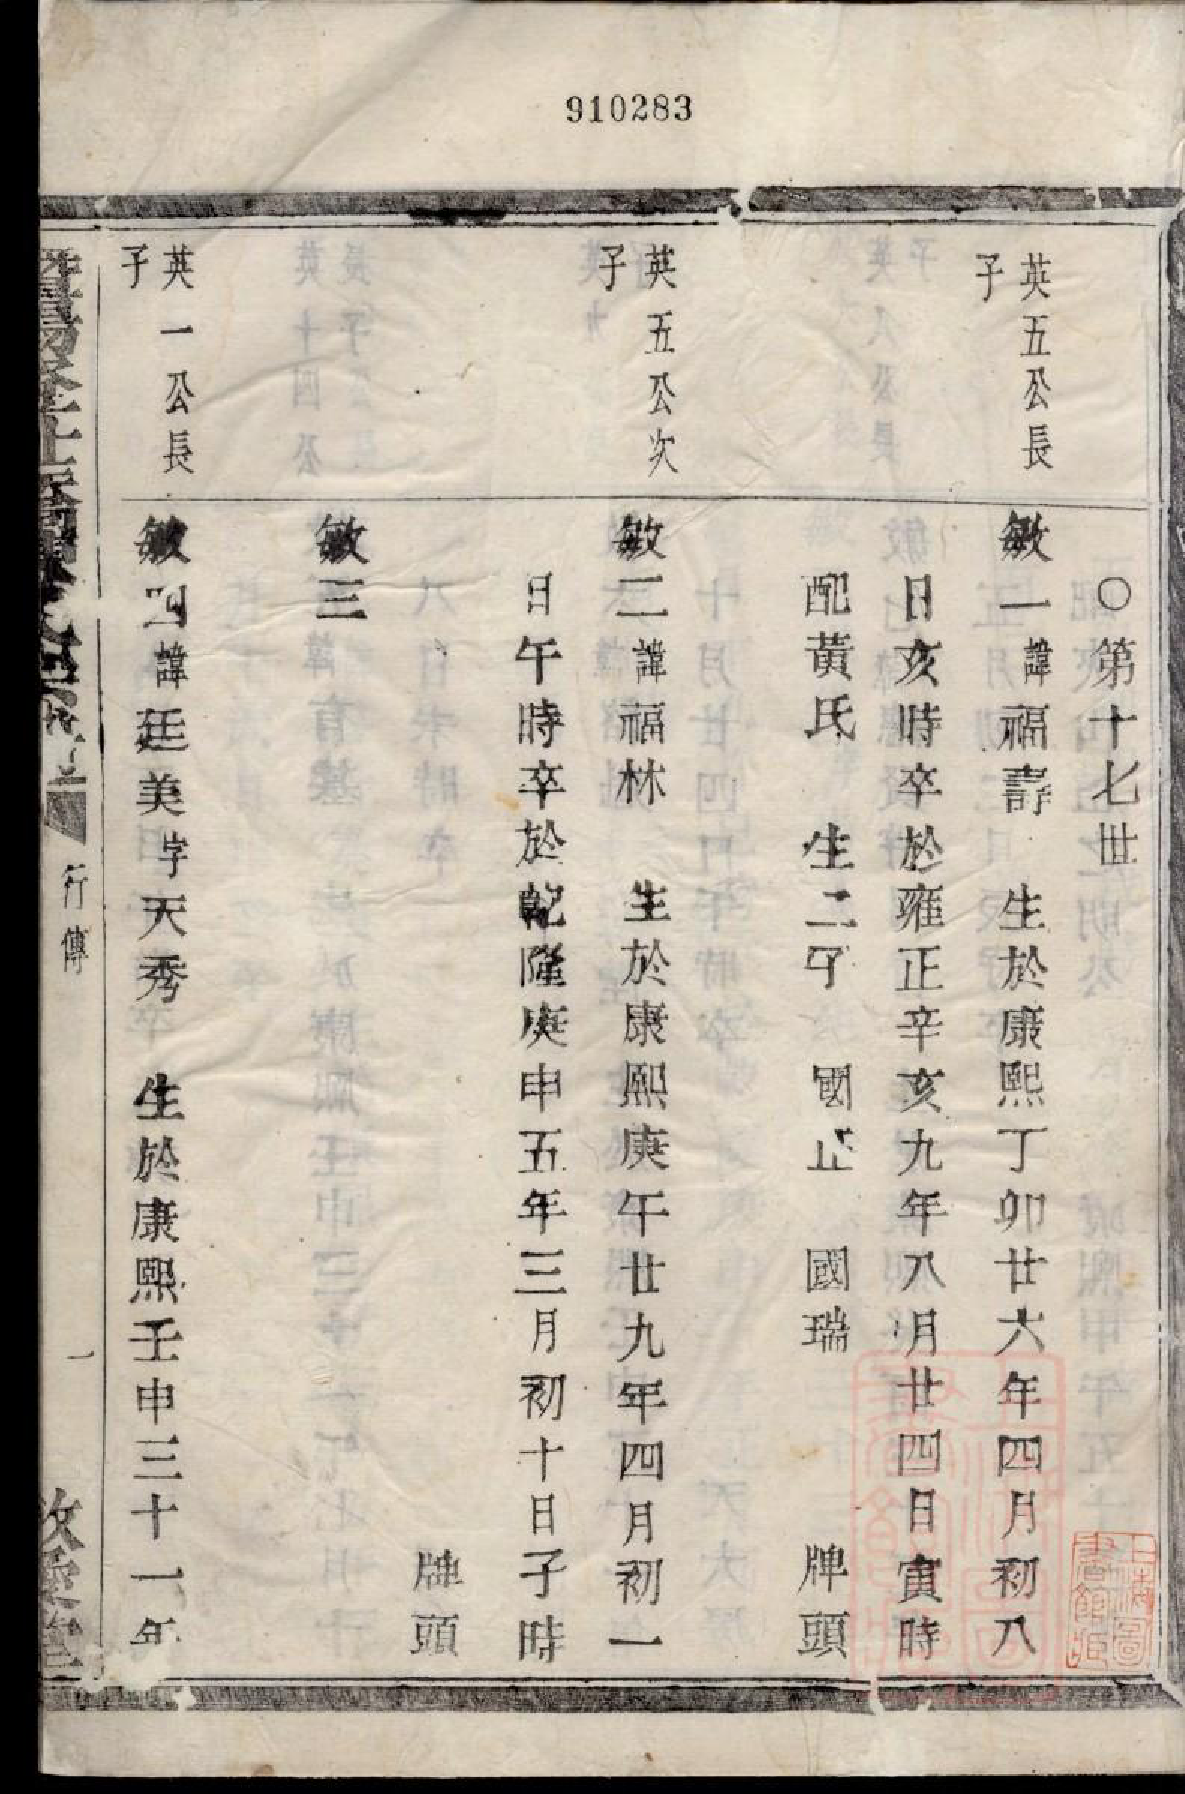 910283
○第十七世
英五公長
子
敏一諱福壽　生於康熙丁卯廿六年四月初八
日亥時卒於雍正辛亥九年八月廿四日寅時
配黃氏　生二子　國正　國瑞　牌頭
英五公次
子
敏二諱福林　生於康熙庚午廿九年四月初一
日午時卒於乾隆庚申五年三月初十日子時
牌頭
敏三
英一公長
子
敏四諱廷美字天秀　生於康熙壬申三十一年
行傳
一
上海圖書館藏